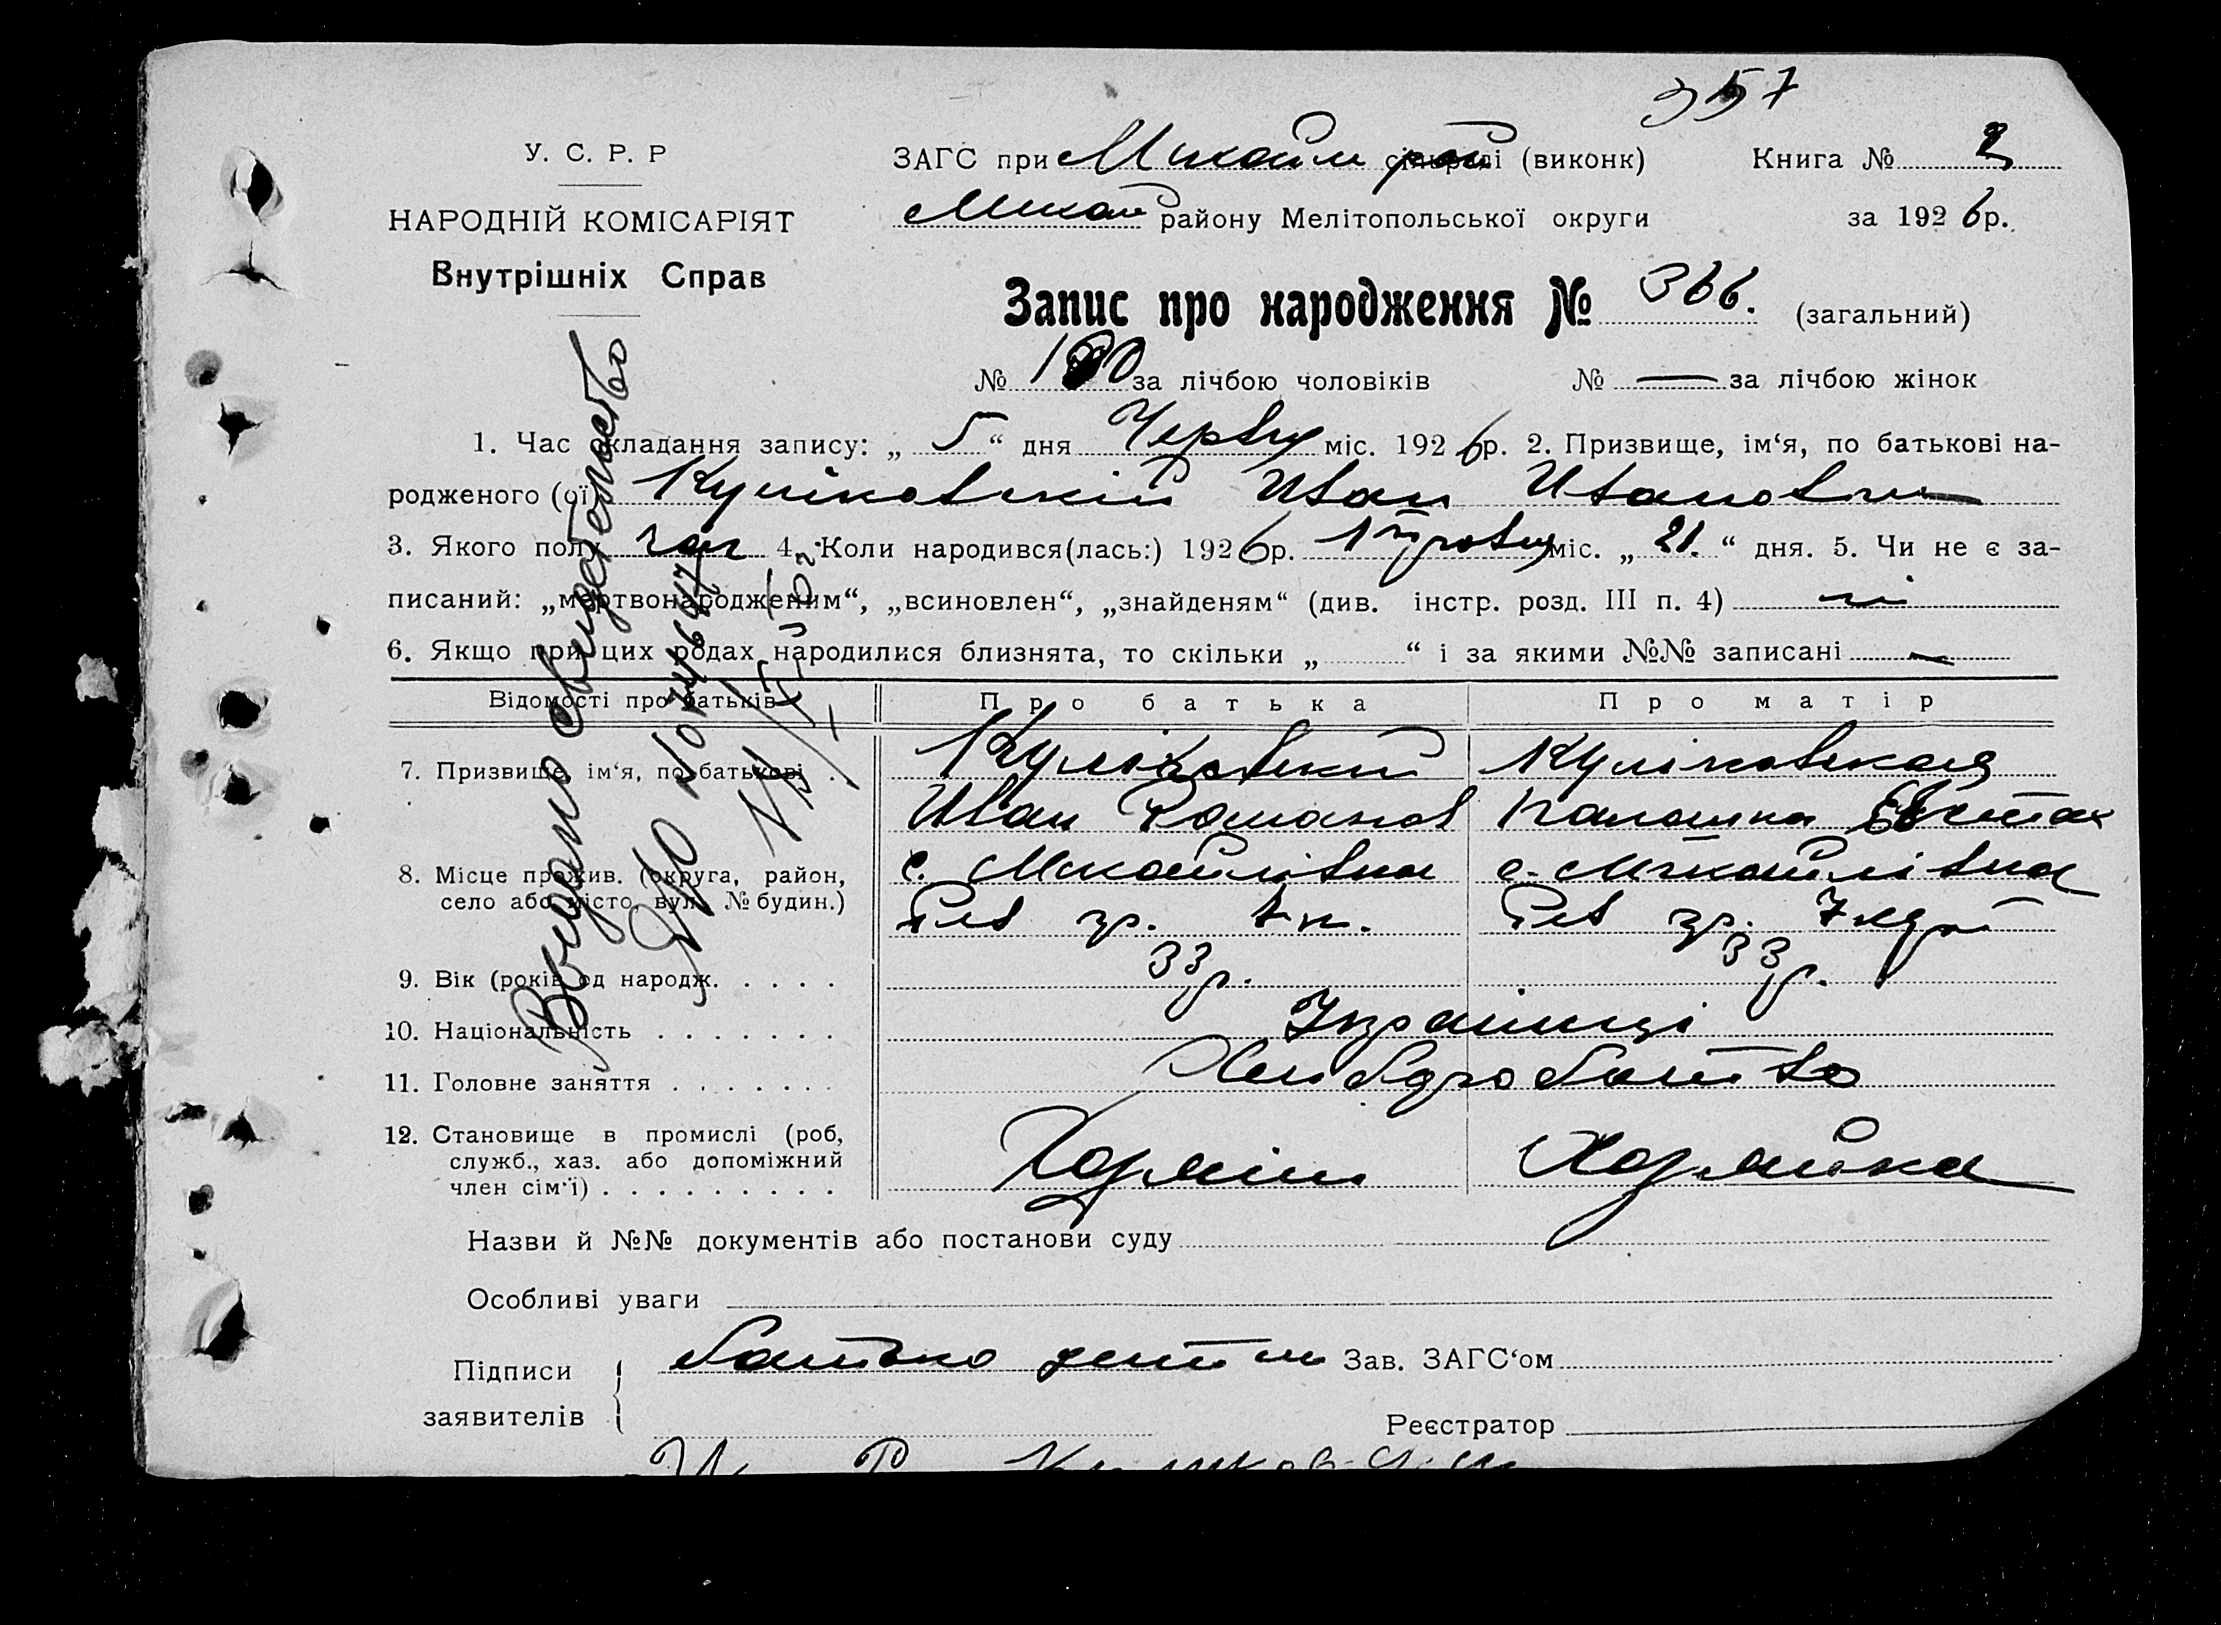 357
У. С. Р. Р
НАРОДНІЙ КОМІСАРІЯТ
Внутрішніх Справ
ЗАГС при Михайл рай (виконк) Книга № 2
Михай району Мелітопольської округи за 1926 р.
Запис про народження № 366. (загальний)
№ 190 за лічбою чоловіків № — за лічбою жінок
1. Час складання запису: „ 5 “ дня Червня міс. 1926 р. 2. Призвище, ім‘я, по батькові на-
родженого (ої) Куліковскій Иван Иванович
3. Якого полу чол 4. Коли народився(лась:) 1926 р. Травня міс. „ 21. “ дня. 5. Чи не є за-
писаний: „мертвонародженим“, „всиновлен“, „знайденям“ (див. інстр. розд. III п. 4) ні
6. Якщо при цих родах народилися близнята, то скільки „ “ і за якими №№ записані —
Відомості про батьків Про батька Про матір
7. Призвище, ім‘я, по батькові . Куліковский Куліковская
Иван Романов
8. Місце прожив. (округа, район, с. Михайлівка с. Михайлівка
село або місто, вул. № будин.)
9. Вік (років од народж. . . . . 33 р. 33 р.
10. Національність . . . . . . . Українці
11. Головне заняття . . . . . . . Хлибдробоитво
12. Становище в промислі (роб,
служб., хаз. або допоміжний
член сім‘ї) . . . . . . . . . Хозяїн Хозяйка
Назви й №№ документів або постанови суду
Особливі уваги
Підписи батько дитини Зав. ЗАГС‘ом
заявителів Реєстратор
Видано свидетельство